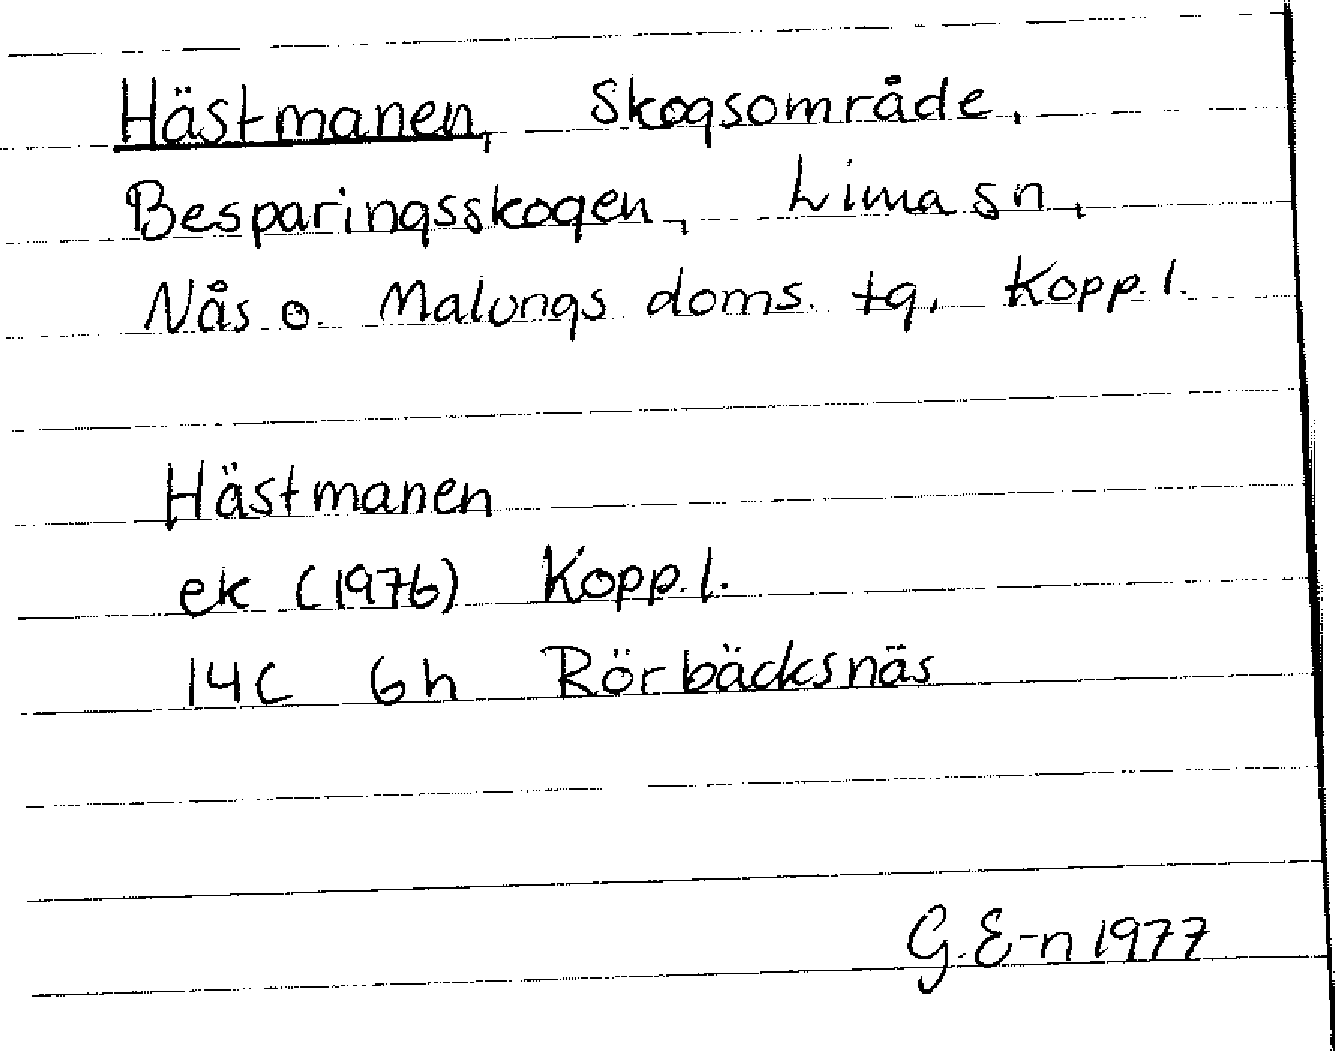 Hästmanen, Skogsområde,
Besparingsskogen, Lima sn,
Nås o. Malungs doms. tg, Kopp. l.
Hästmanen
ek (1976) Kopp. l.
14C 6h Rörbäcksnäs
G. E-n 1977